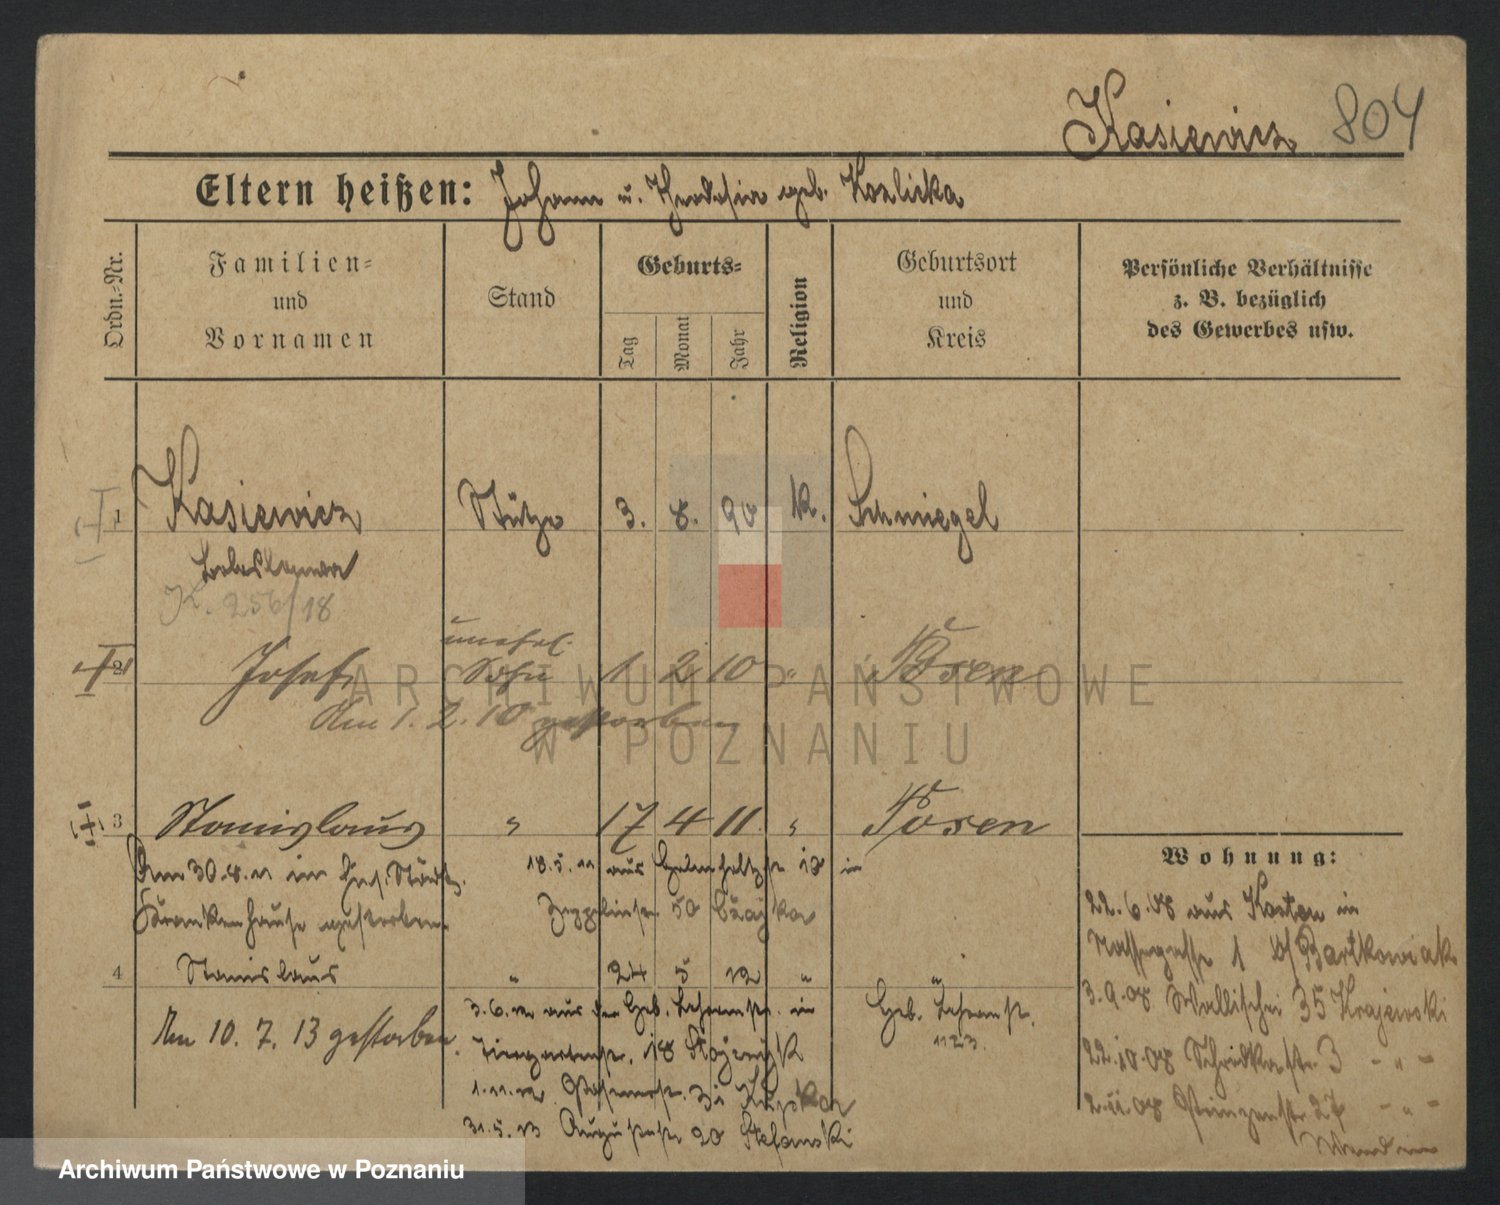 Kasiewicz 804
Eltern heißen: Johann u. Theodosia geb. Kozlicka
Ordn.-Nr.
Familien-
und
Vornamen
Stand
Geburts-
Tag
Monat
Jahr
Religion
Geburtsort
und
Kreis
Persönliche Verhältnisse
z. B. bezüglich
des Gewerbes usw.
1 Kasiewicz Stütze 3. 8. 90 K. Schmiegel
K. 256/18
unehel.
2 Josef Sohn 1 2 10 " Posen
Am 1. 2. 10 gestorben
3 Stanislaus " 17 4 11 " Posen
Am 30.8.11 im Städt.
Krankenhause gestorben.
18.5.11 aus in
50
4 Stanislaus " 24 5 12 " "
Am 10. 7. 13 gestorben.
3.6.12 aus der Geb. in
Tiergartenstr. 18
Geb.
1123.
1.11.12 31
31.5.13 Augustastr 20 Stefanski
Wohnung:
22.6.08 aus Kosten in
1 b/ Bartkowiak
3.9.08 Wallischei 35 Krajewski
22.10.08 3 - " -
2.11.08 27 - " -
ARCHIWUM PAŃSTWOWE
W POZNANIU
Archiwum Państwowe w Poznaniu